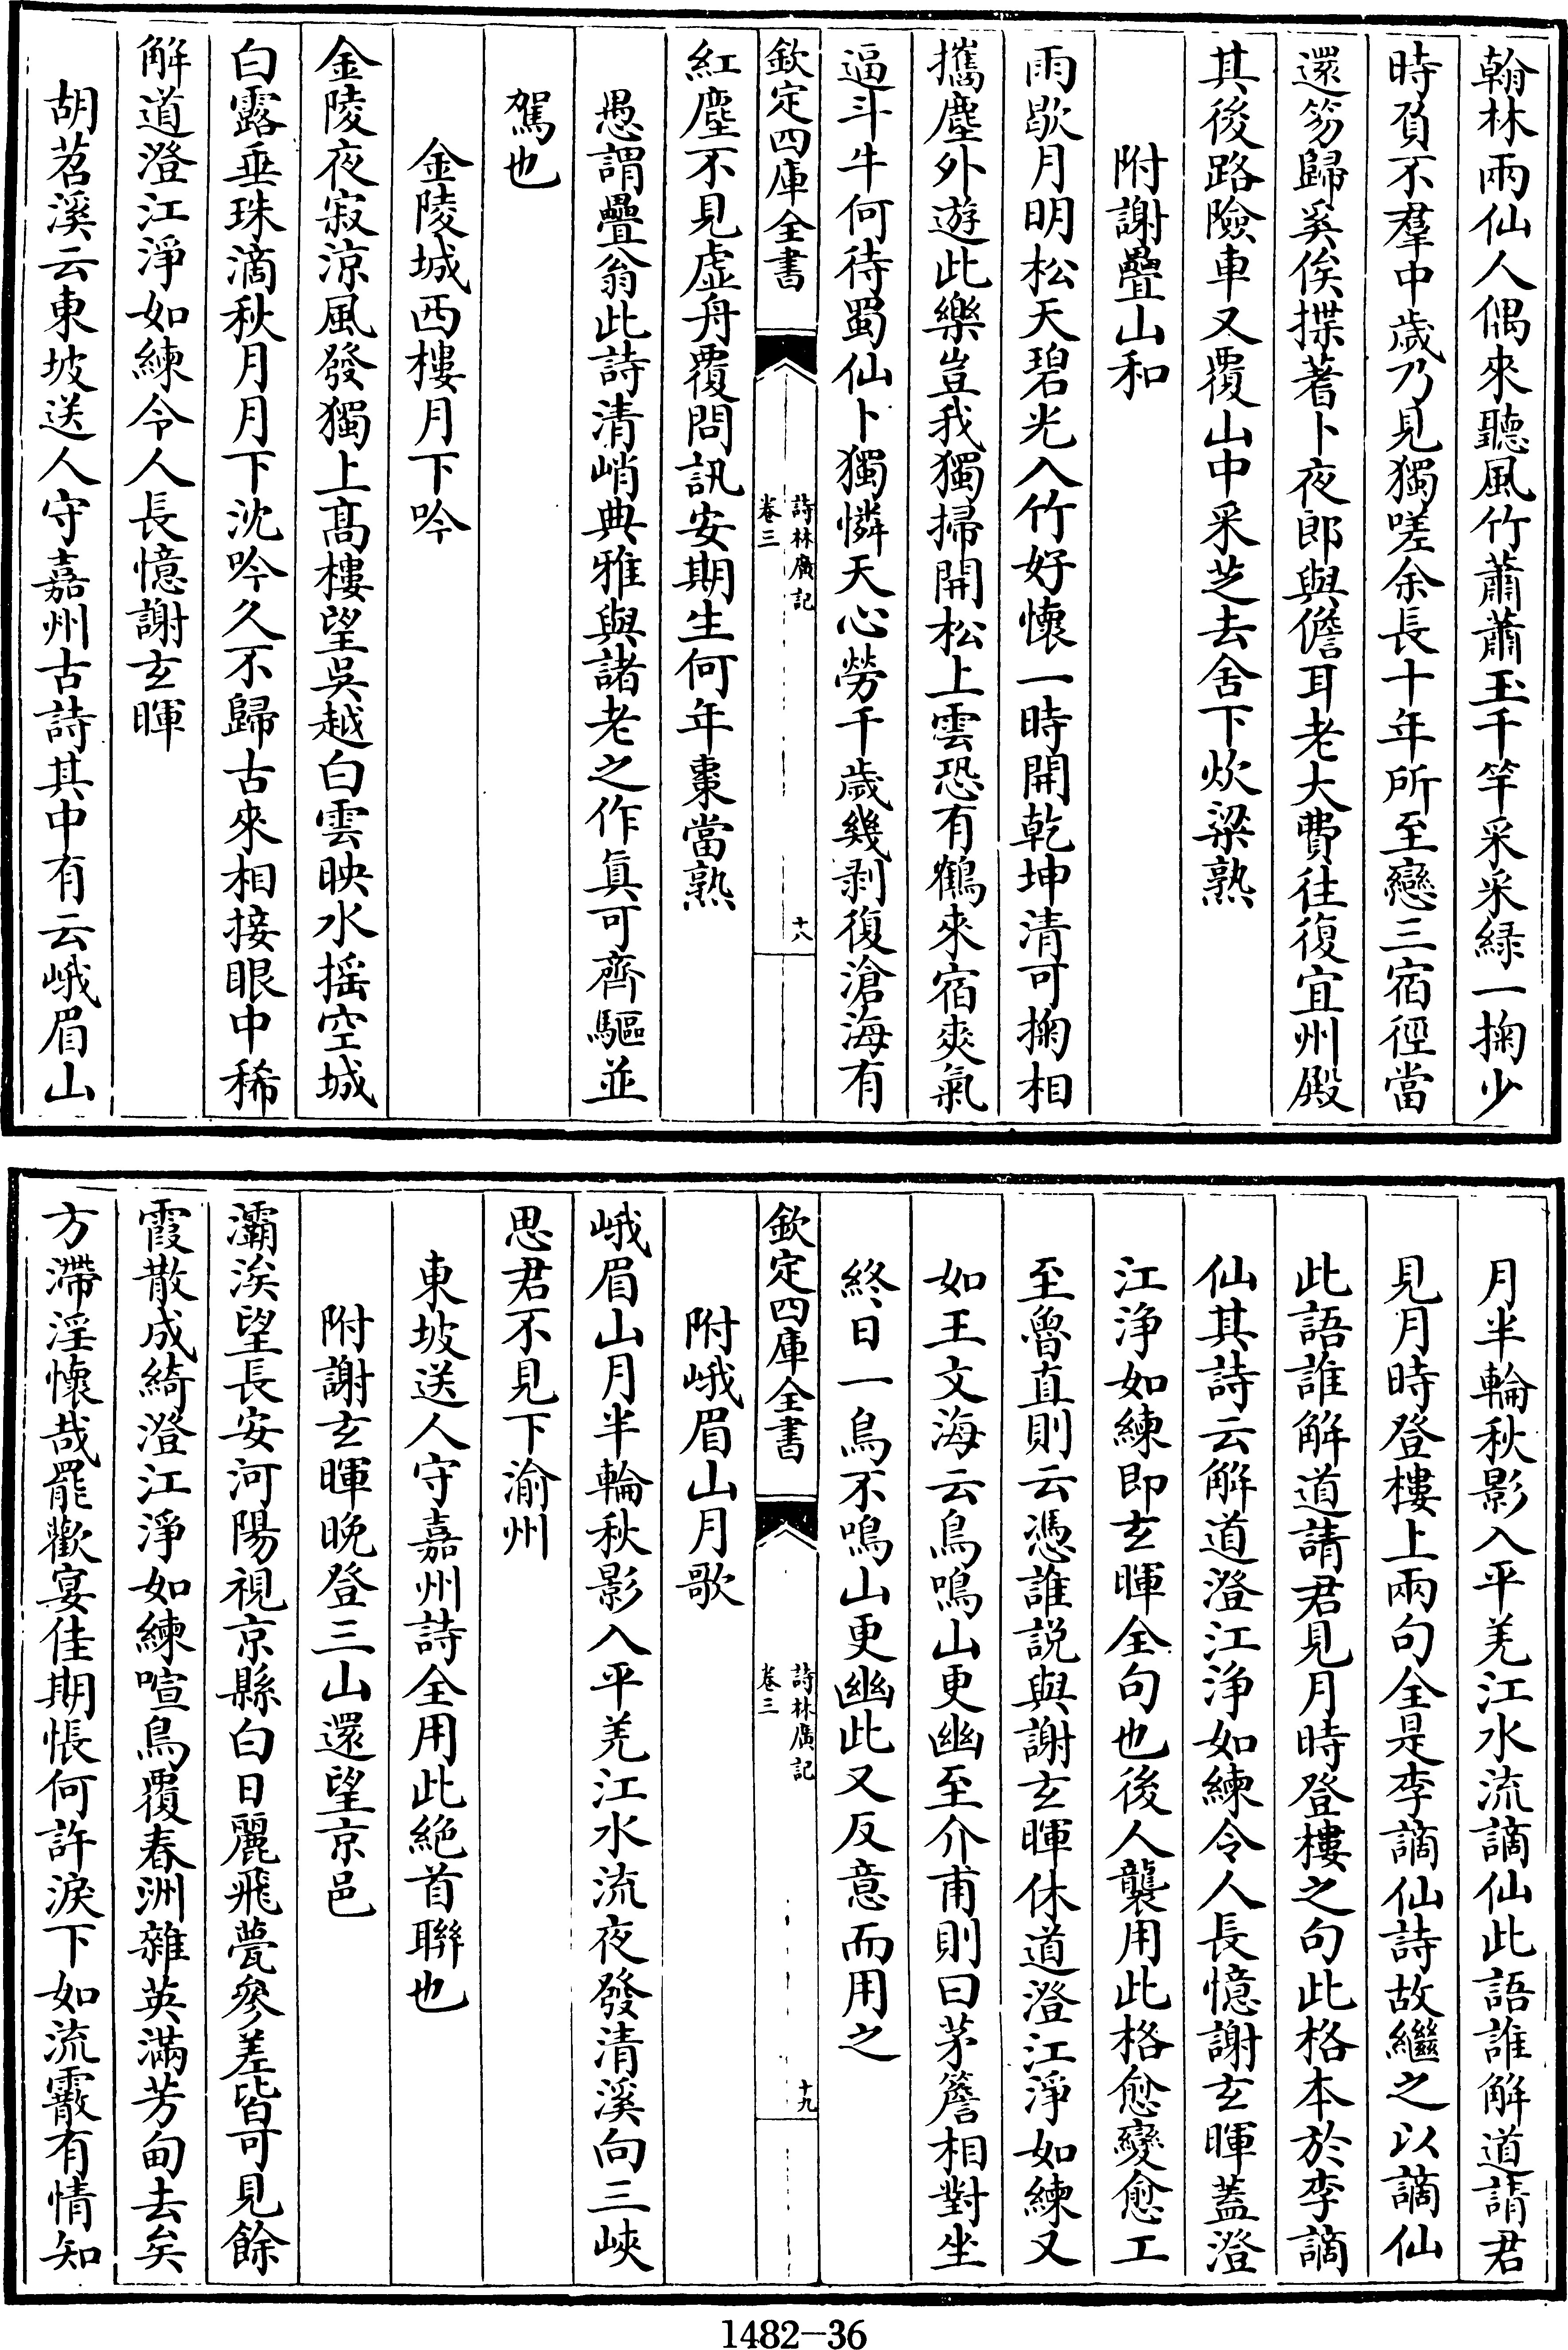 翰林兩仙人偶來聽風竹蕭蕭玉千竿采采緑一掬少
時負不羣中歲乃見獨嗟余長十年所至戀三宿徑當
還笏歸奚俟揲蓍卜夜郎與儋耳老大費往復宜州殿
其後路險車又覆山中采芝去舍下炊粱熟
附謝疊山和
雨歇月明松天碧光入竹好懷一時開乾坤清可掬相
攜塵外遊此樂豈我獨掃開松上雲恐有鶴來宿爽氣
逼斗牛何待蜀仙卜獨憐天心勞千歲幾剥復滄海有
欽定四庫全書
詩林廣記
卷三
十八
紅塵不見虚舟覆問訊安期生何年棗當熟
愚謂疊翁此詩清峭典雅與諸老之作真可齊驅並
駕也
金陵城西樓月下吟
金陵夜寂涼風發獨上髙樓望吳越白雲映水摇空城
白露垂珠滴秋月月下沈吟久不歸古來相接眼中稀
解道澄江淨如練令人長憶謝玄暉
胡苕溪云東坡送人守嘉州古詩其中有云峨眉山
月半輪秋影入平羌江水流謫仙此語誰解道請君
見月時登樓上兩句全是李謫仙詩故繼之以謫仙
此語誰解道請君見月時登樓之句此格本於李謫
仙其詩云解道澄江淨如練令人長憶謝玄暉蓋澄
江淨如練即玄暉全句也後人襲用此格愈變愈工
至魯直則云憑誰説與謝玄暉休道澄江淨如練又
如王文海云鳥鳴山更幽至介甫則曰茅簷相對坐
終日一鳥不鳴山更幽此又反意而用之
欽定四庫全書
詩林廣記
卷三
十九
附峨眉山月歌
峨眉山月半輪秋影入平羌江水流夜發清溪向三峽
思君不見下渝州
東坡送人守嘉州詩全用此絶首聯也
附謝玄暉晚登三山還望京邑
灞涘望長安河陽視京縣白日麗飛甍參差皆可見餘
霞散成綺澄江淨如練喧鳥覆春洲雜英滿芳甸去矣
方滯淫懷哉罷歡宴佳期悵何許淚下如流霰有情知
1482-36